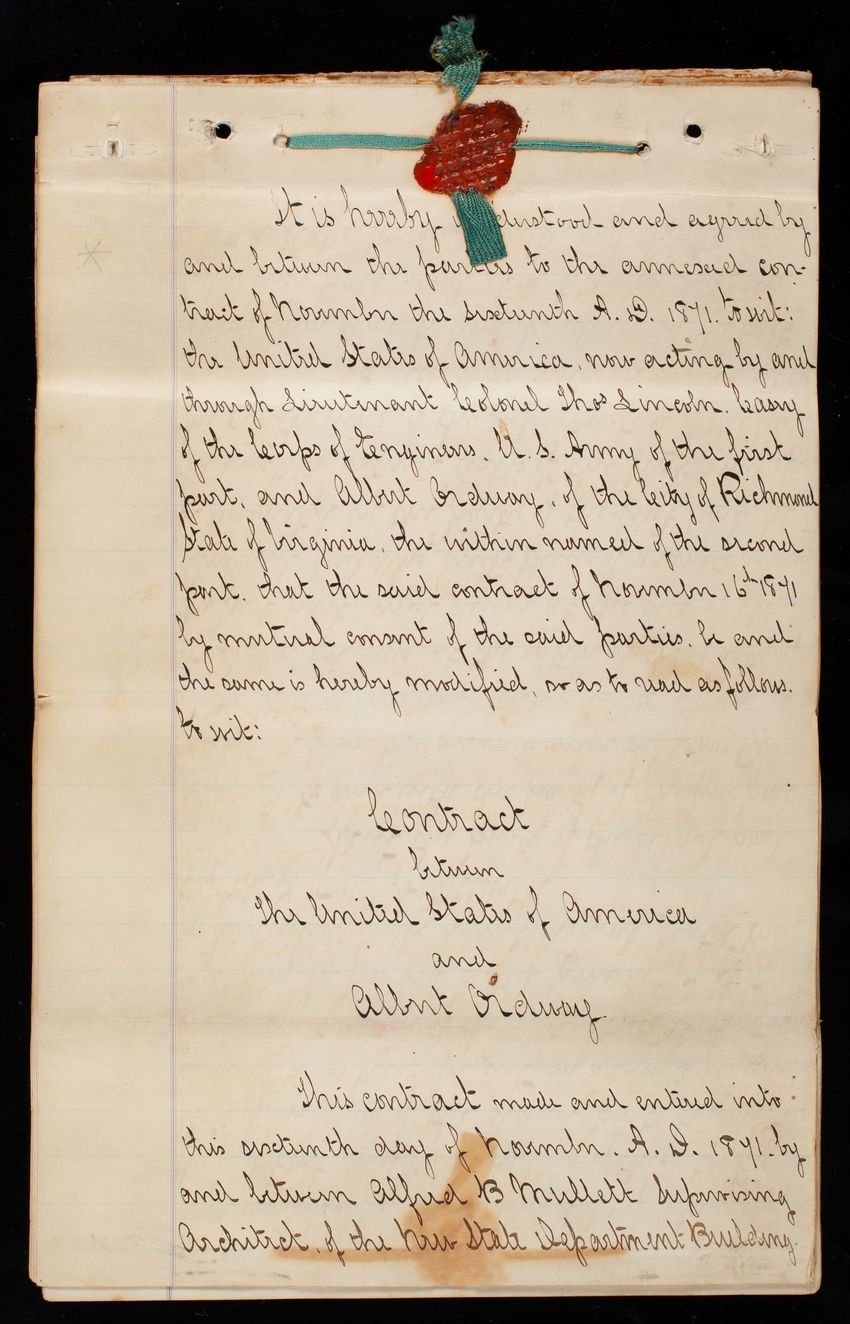 It is hereby understood and agreed by
and between the parties to the annexed con-
tract of November the sixteenth A. D. 1871. to wit:
the United States of America, now acting by and
through Lieutenant Colonel Thos Lincoln. Casey
of the Corps of Engineers, U. S. Army of the first
part, and Albert Ordway, of the City of Richmond
State of Virginia, the within named of the second
part. that the said contract of November 16th 1871
by mutual consent of the said parties, be and
the same is hereby modified, so as to read as follows.
to wit:
Contract
between
The United States of America
and
Albert Ordway.
This contract made and entered into
this sixteenth day of November. A. D. 1871. by
and between Alfred B Mullett Supervising
Architect, of the New State Department Building.